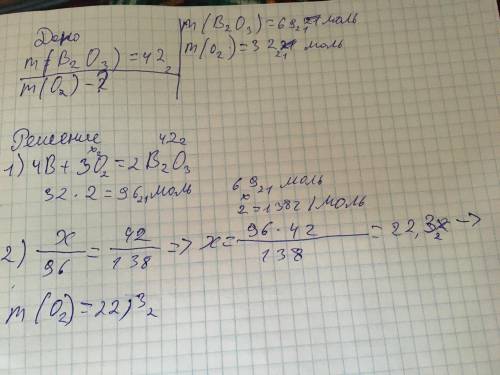 Дано
m(B₂O₃) = 42г
m(O₂) - ?
m(B₂O₃) = 69г/моль
m(O₂) = 32г/моль
Решение
xг 42г
1) 4B + 3O₂ = 2B₂O₃
32 · 2 = 96г/моль
69г/моль
x
2 = 138г/моль
2) x/96 = 42/138 => x = 96 · 42/138 = 22,3г ->
m(O₂) = 22,3г